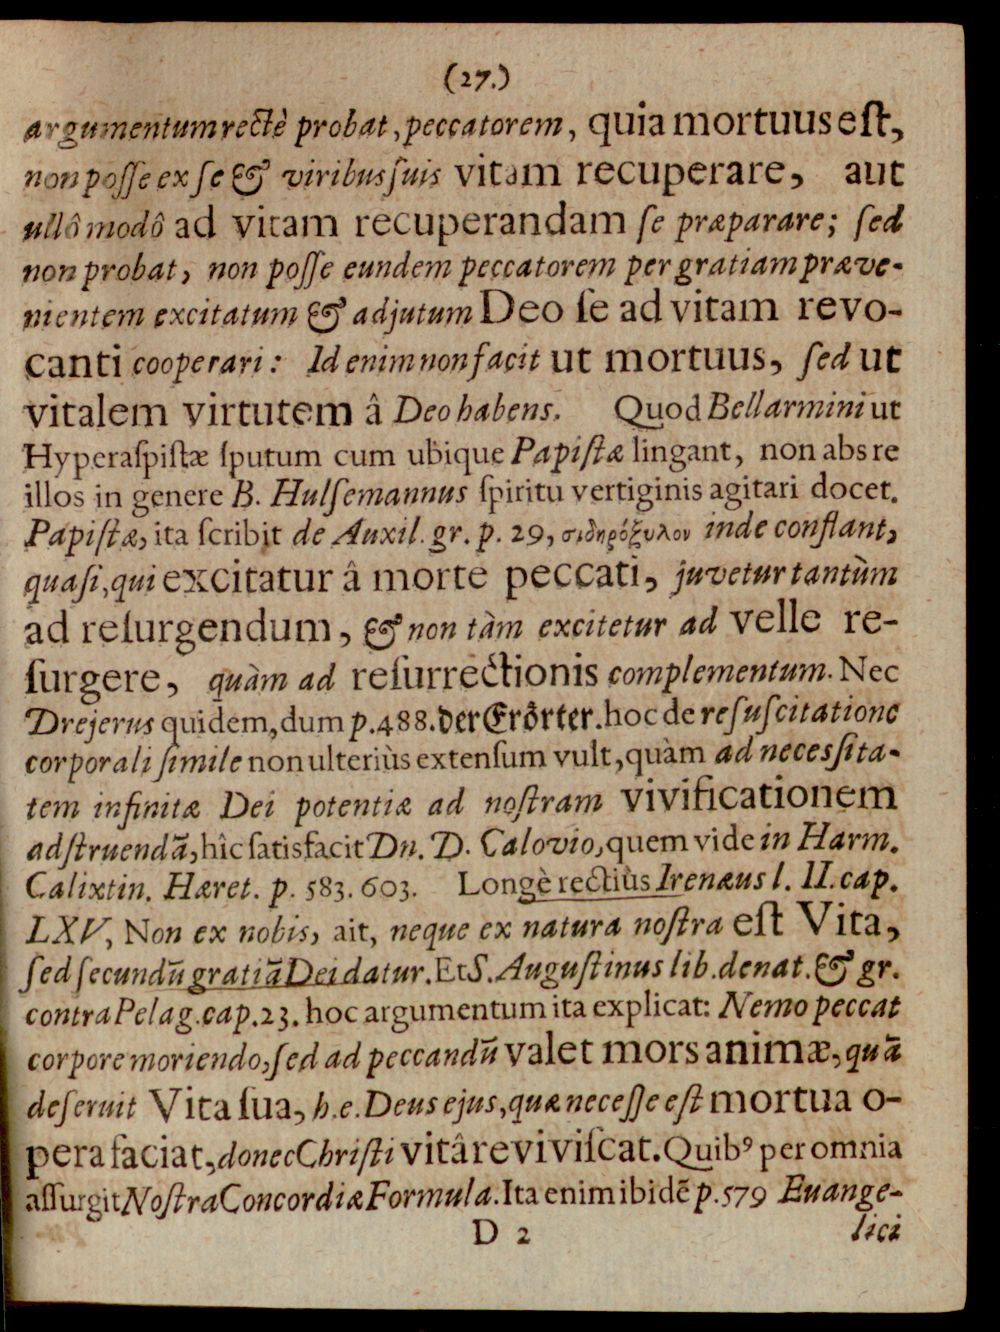 (27.)
argumentum rectè probat, peccatorem, quia mortuus eſt,
non poſſe ex ſe & viribus ſuis vitam recuperare, aut
ullô modô ad vitam recuperandam ſe præparare; ſed
non probat, non poſſe eundem peccatorem per gratiam præve-
nientem excitatum & adjutum Deo ſe ad vitam revo-
canti cooperari: Id enim non facit ut mortuus, ſed ut
vitalem virtutem â Deo habens. Quod Bellarmini ut
Hyperaſpiſtæ ſputum cum ubique Papiſtæ lingant, non abs re
illos in genere B. Hulſemannus ſpiritu vertiginis agitari docet.
Papiſtæ, ita ſcribit de Auxil. gr. p. 29, σιδηρόξυλον inde conflant,
quaſi, qui excitatur â morte peccati, juvetur tantùm
ad reſurgendum, & non tàm excitetur ad velle re-
ſurgere, quàm ad reſurrectionis complementum. Nec
Drejerus quidem, dum p. 488. der Erörter. hoc de reſuſcitatione
corporali ſimile non ulteriùs extenſum vult, quàm ad neceſſita-
tem infinitæ Dei potentiæ ad noſtram vivificationem
adſtruendã, hîc ſatisfacit Dn. D. Calovio, quem vide in Harm.
Calixtin. Hæret. p. 583. 603. Longè rectiùs Irenæus l. II. cap.
LXV, Non ex nobis, ait, neque ex natura noſtra eſt Vita,
ſed ſecundũ gratiã Dei datur. Et S. Auguſtinus lib. de nat. & gr.
contra Pelag. cap. 23. hoc argumentum ita explicat: Nemo peccat
corpore moriendo, ſed ad peccandũ valet mors animæ, quã
deſeruit Vita ſua, h. e. Deus ejus, quæ neceſſe eſt mortua o-
pera faciat, donec Chriſti vitâ reviviſcat. Quibꝰ per omnia
aſſurgit Noſtra Concordiæ Formula. Ita enim ibidẽ p. 579 Euange-
D 2 lici